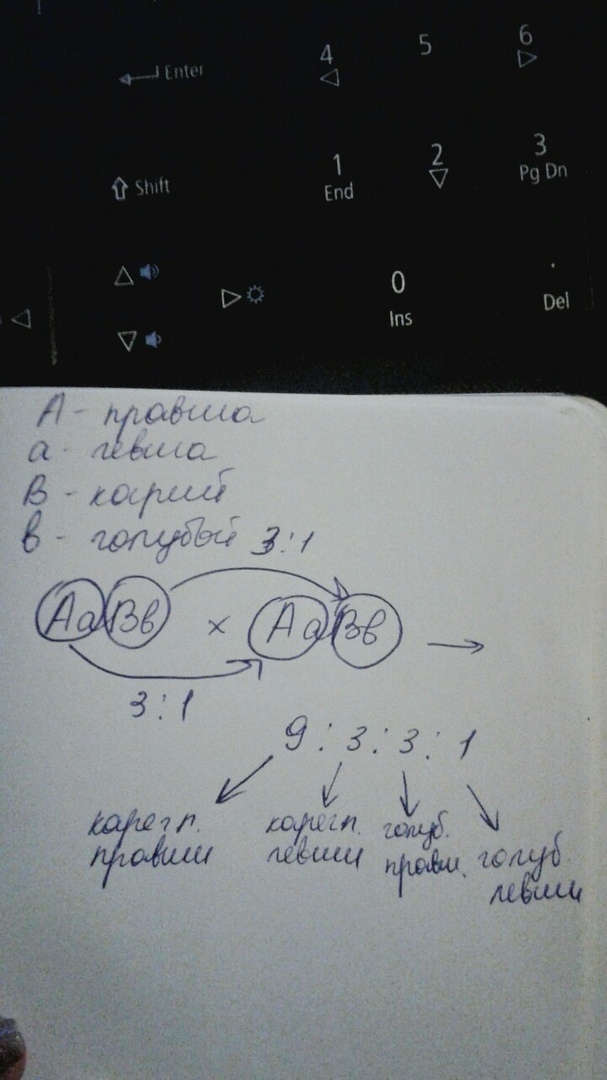 4 5 6
Enter
1 2 3
End Pg Dn
Shift
0 .
Ins Del
А - правша
а - левша
В - карий
в - голубой 3:1
АаВв × АаВв →
3:1
9 : 3 : 3 : 1
карегл. карегл. голуб. голуб
правши левши правш. левши